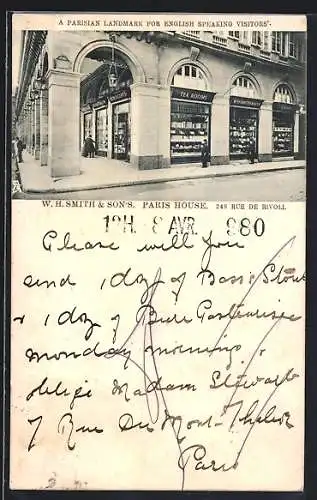 'A PARISIAN LANDMARK FOR ENGLISH SPEAKING VISITORS'
TEA ROOMS
W. H. SMITH & SON'S. PARIS HOUSE. 248 RUE DE RIVOLI.
12H. 8 AVR. 980
Please will you
send 1 doz of Bass Stout
+ 1 doz of Biere
monday morning,
oblige Madam Stewart
7 Rue Du Mont-Thabor
Paris